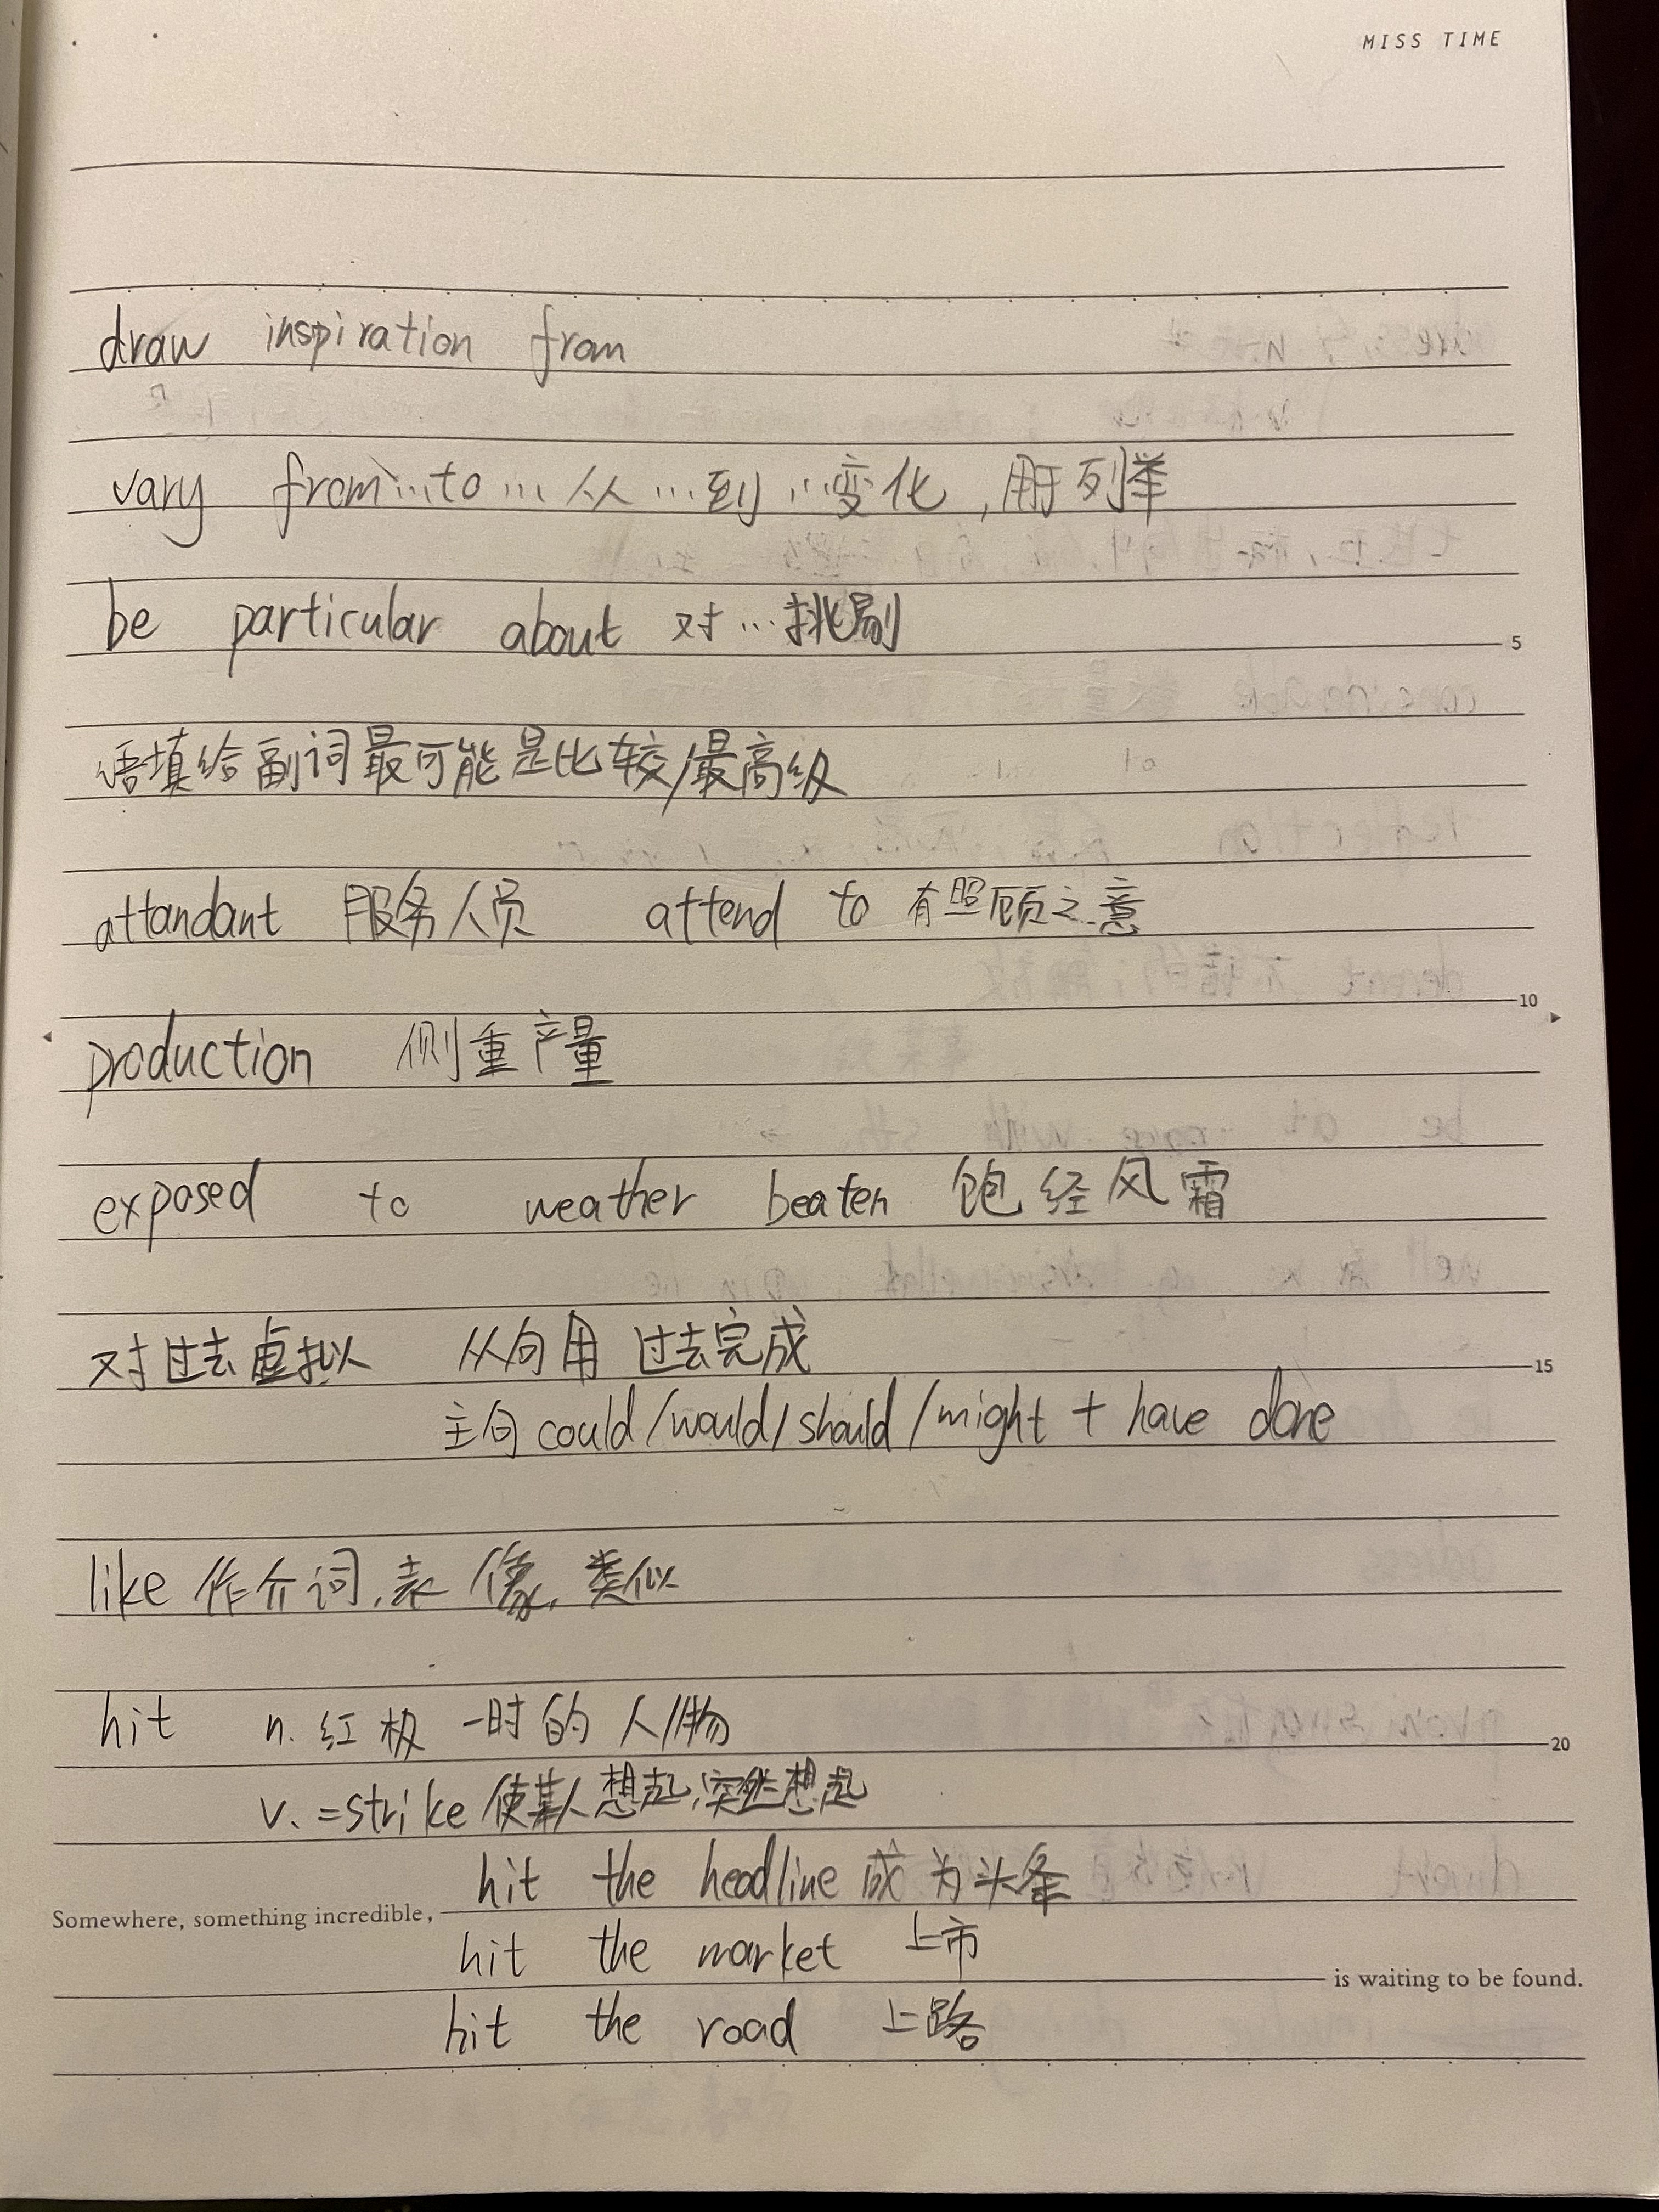 MISS TIME
draw inspiration from
vary from...to... 从...到...变化,用于列举
be particular about 对...挑剔
5
语填给副词最可能是比较/最高级
attandant 服务人员 attend to 有照顾之意
10
production 侧重产量
exposed to weather beaten 饱经风霜
对过去虚拟 从句用 过去完成
15
主句 could/would/should/might + have done
like 作介词,表 像,类似
hit n. 红极一时的 人/物
20
v. =strike 使某人想起,突然想起
hit the headline 成为头条
hit the market 上市
hit the road 上路
Somewhere, something incredible, is waiting to be found.